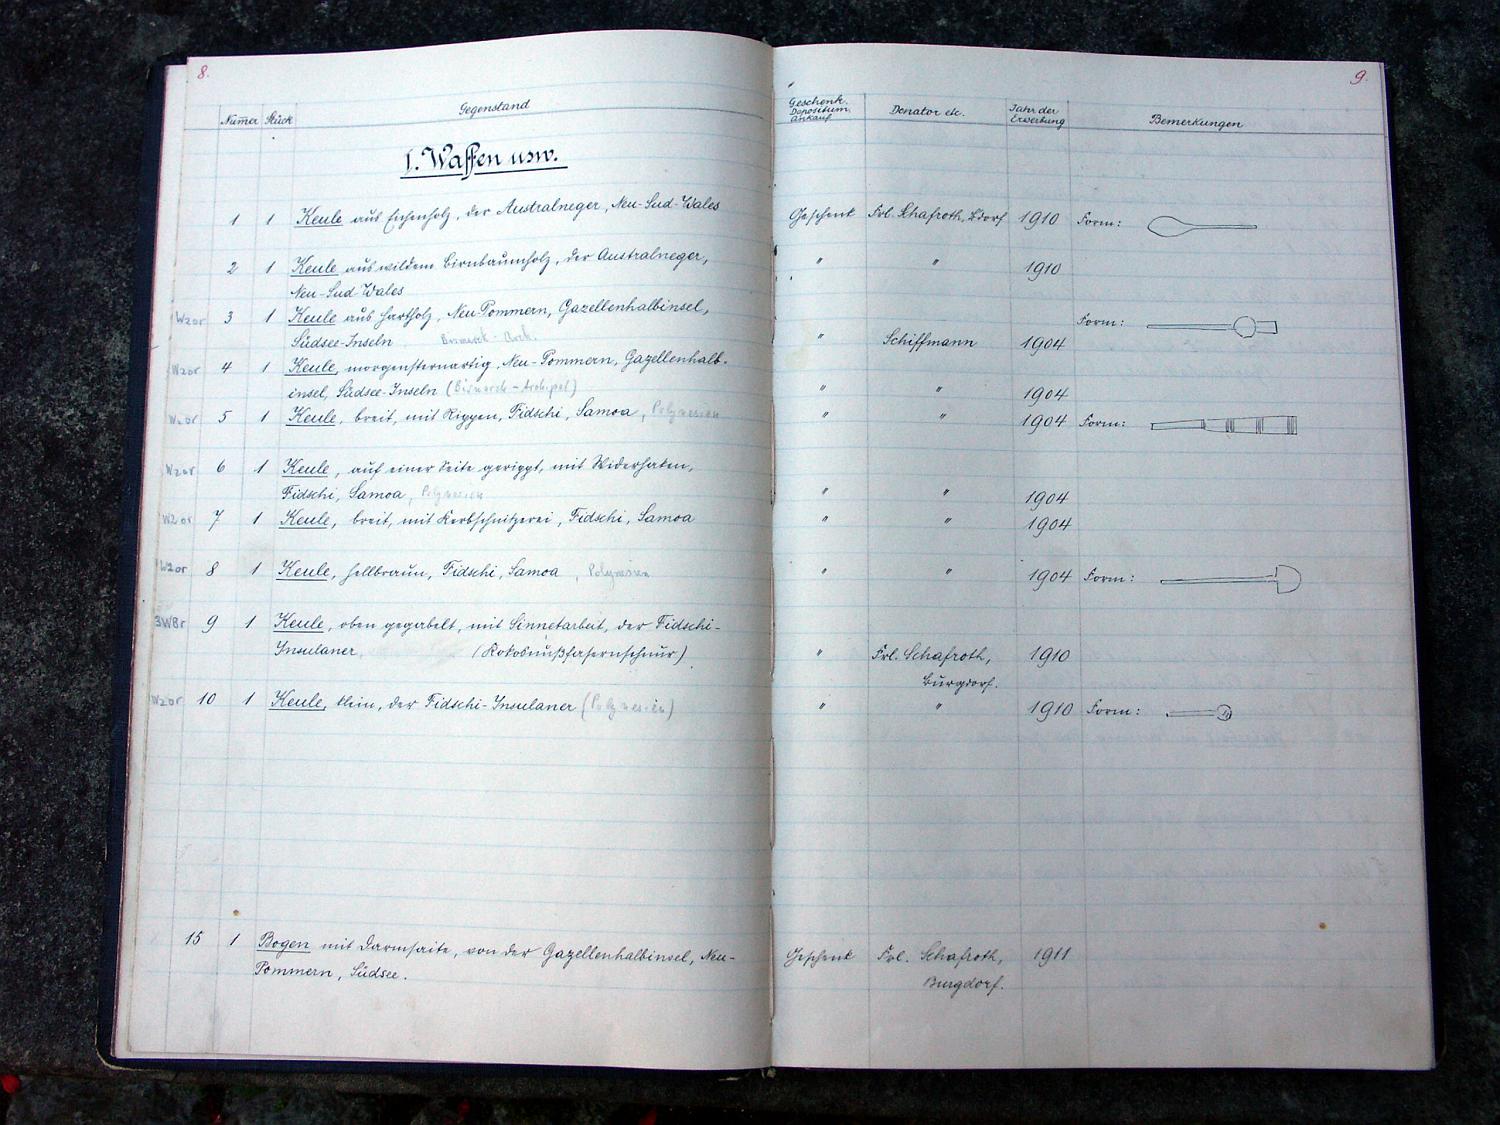 8.
Numer Stück Gegenstand
I. Waffen usw.
1 1 Keule aus Eichenholz, der Australneger, Neu-Sud-Wales
2 1 Keule aus wildem Birnbaumholz, der Australneger,
Neu-Sud-Wales
W2or 3 1 Keule aus Hartholz, Neu-Pommern, Gazellenhalbinsel,
Südsee-Inseln Bismark-Arch.
W2or 4 1 Keule, morgensternartig, Neu-Pommern, Gazellenhalb-
insel, Südsee-Inseln (Bismarck-Archipel)
W2or 5 1 Keule, breit, mit Rippen, Fidschi, Samoa, Polynesien
W2or 6 1 Keule, auf einer Seite gerippt, mit Widerhaken,
Fidschi, Samoa, Polynesien
W2or 7 1 Keule, breit, mit Kerbschnitzerei, Fidschi, Samoa
W2or 8 1 Keule, hellbraun, Fidschi, Samoa, Polynesien
3W8r 9 1 Keule, oben gegabelt, mit Sinnetarbeit, der Fidschi-
Insulaner (Kokosnußfasernschnur)
W2or 10 1 Keule, klein, der Fidschi-Insulaner (Polynesien)
15 1 Bogen mit Darmsaite, von der Gazellenhalbinsel, Neu-
Pommern, Südsee.
9.
Geschenk.
Depositum.
Ankauf. Donator etc. Jahr der
Erwerbung Bemerkungen
Geschenk Frl. Schafroth, Bdorf 1910 Form:
" " 1910
Form:
" Schiffmann 1904
" " 1904
" " 1904 Form:
" " 1904
" " 1904
" " 1904 Form:
" Frl. Schafroth, 1910
Burgdorf.
" " 1910 Form:
Geschenk Frl. Schafroth, 1911
Burgdorf.